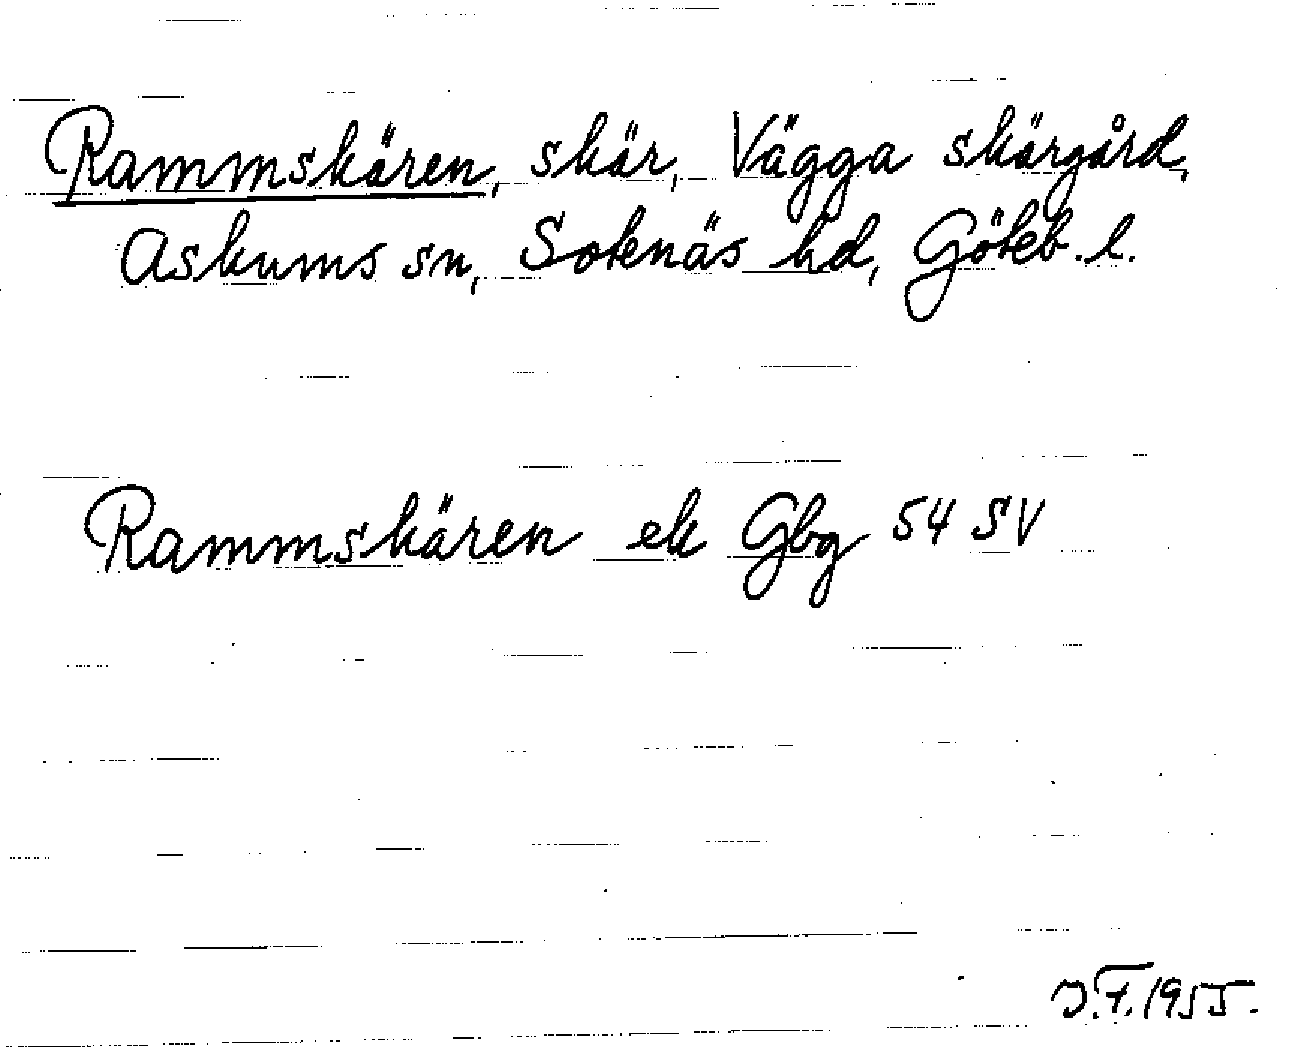 Rammskären, skär, Vägga skärgård,
Askums sn, Sotenäs hd, Göteb. l.
Rammskären ek Gbg 54 SV
J.F. 1955.